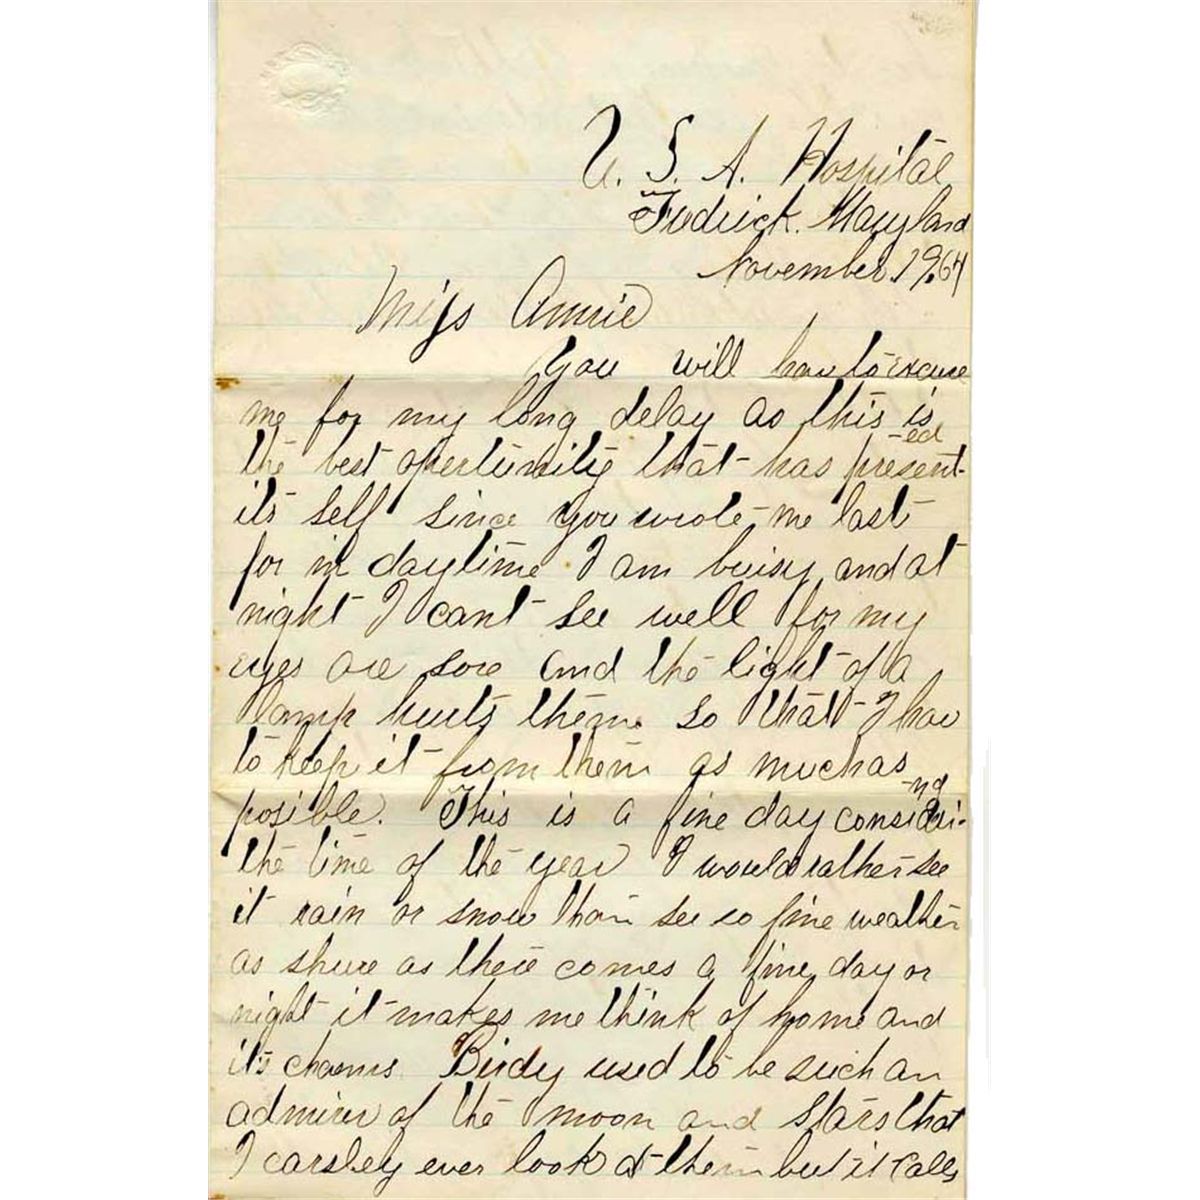 U. S. A. Hospital
Fedrick. Maryland
November. 19, 64
Miss Annie
You will hav to excuse
me for my long delay as this is
the best opertunity that has present-ed
its self since you wrote me last
for in daytime I am buisy and at
night I cant see well for my
eyes are sore and the light of a
lamp hurts them so that I hav
to keep it from them as much as
posible. This is a fine day consideri-ng
the time of the year I would rather see
it rain or snow than see so fine weather
as shure as there comes a fine day or
night it makes me think of home and
its charms Birdy used to be such an
admirer of the moon and stars that
I carsley ever look at them but it calls